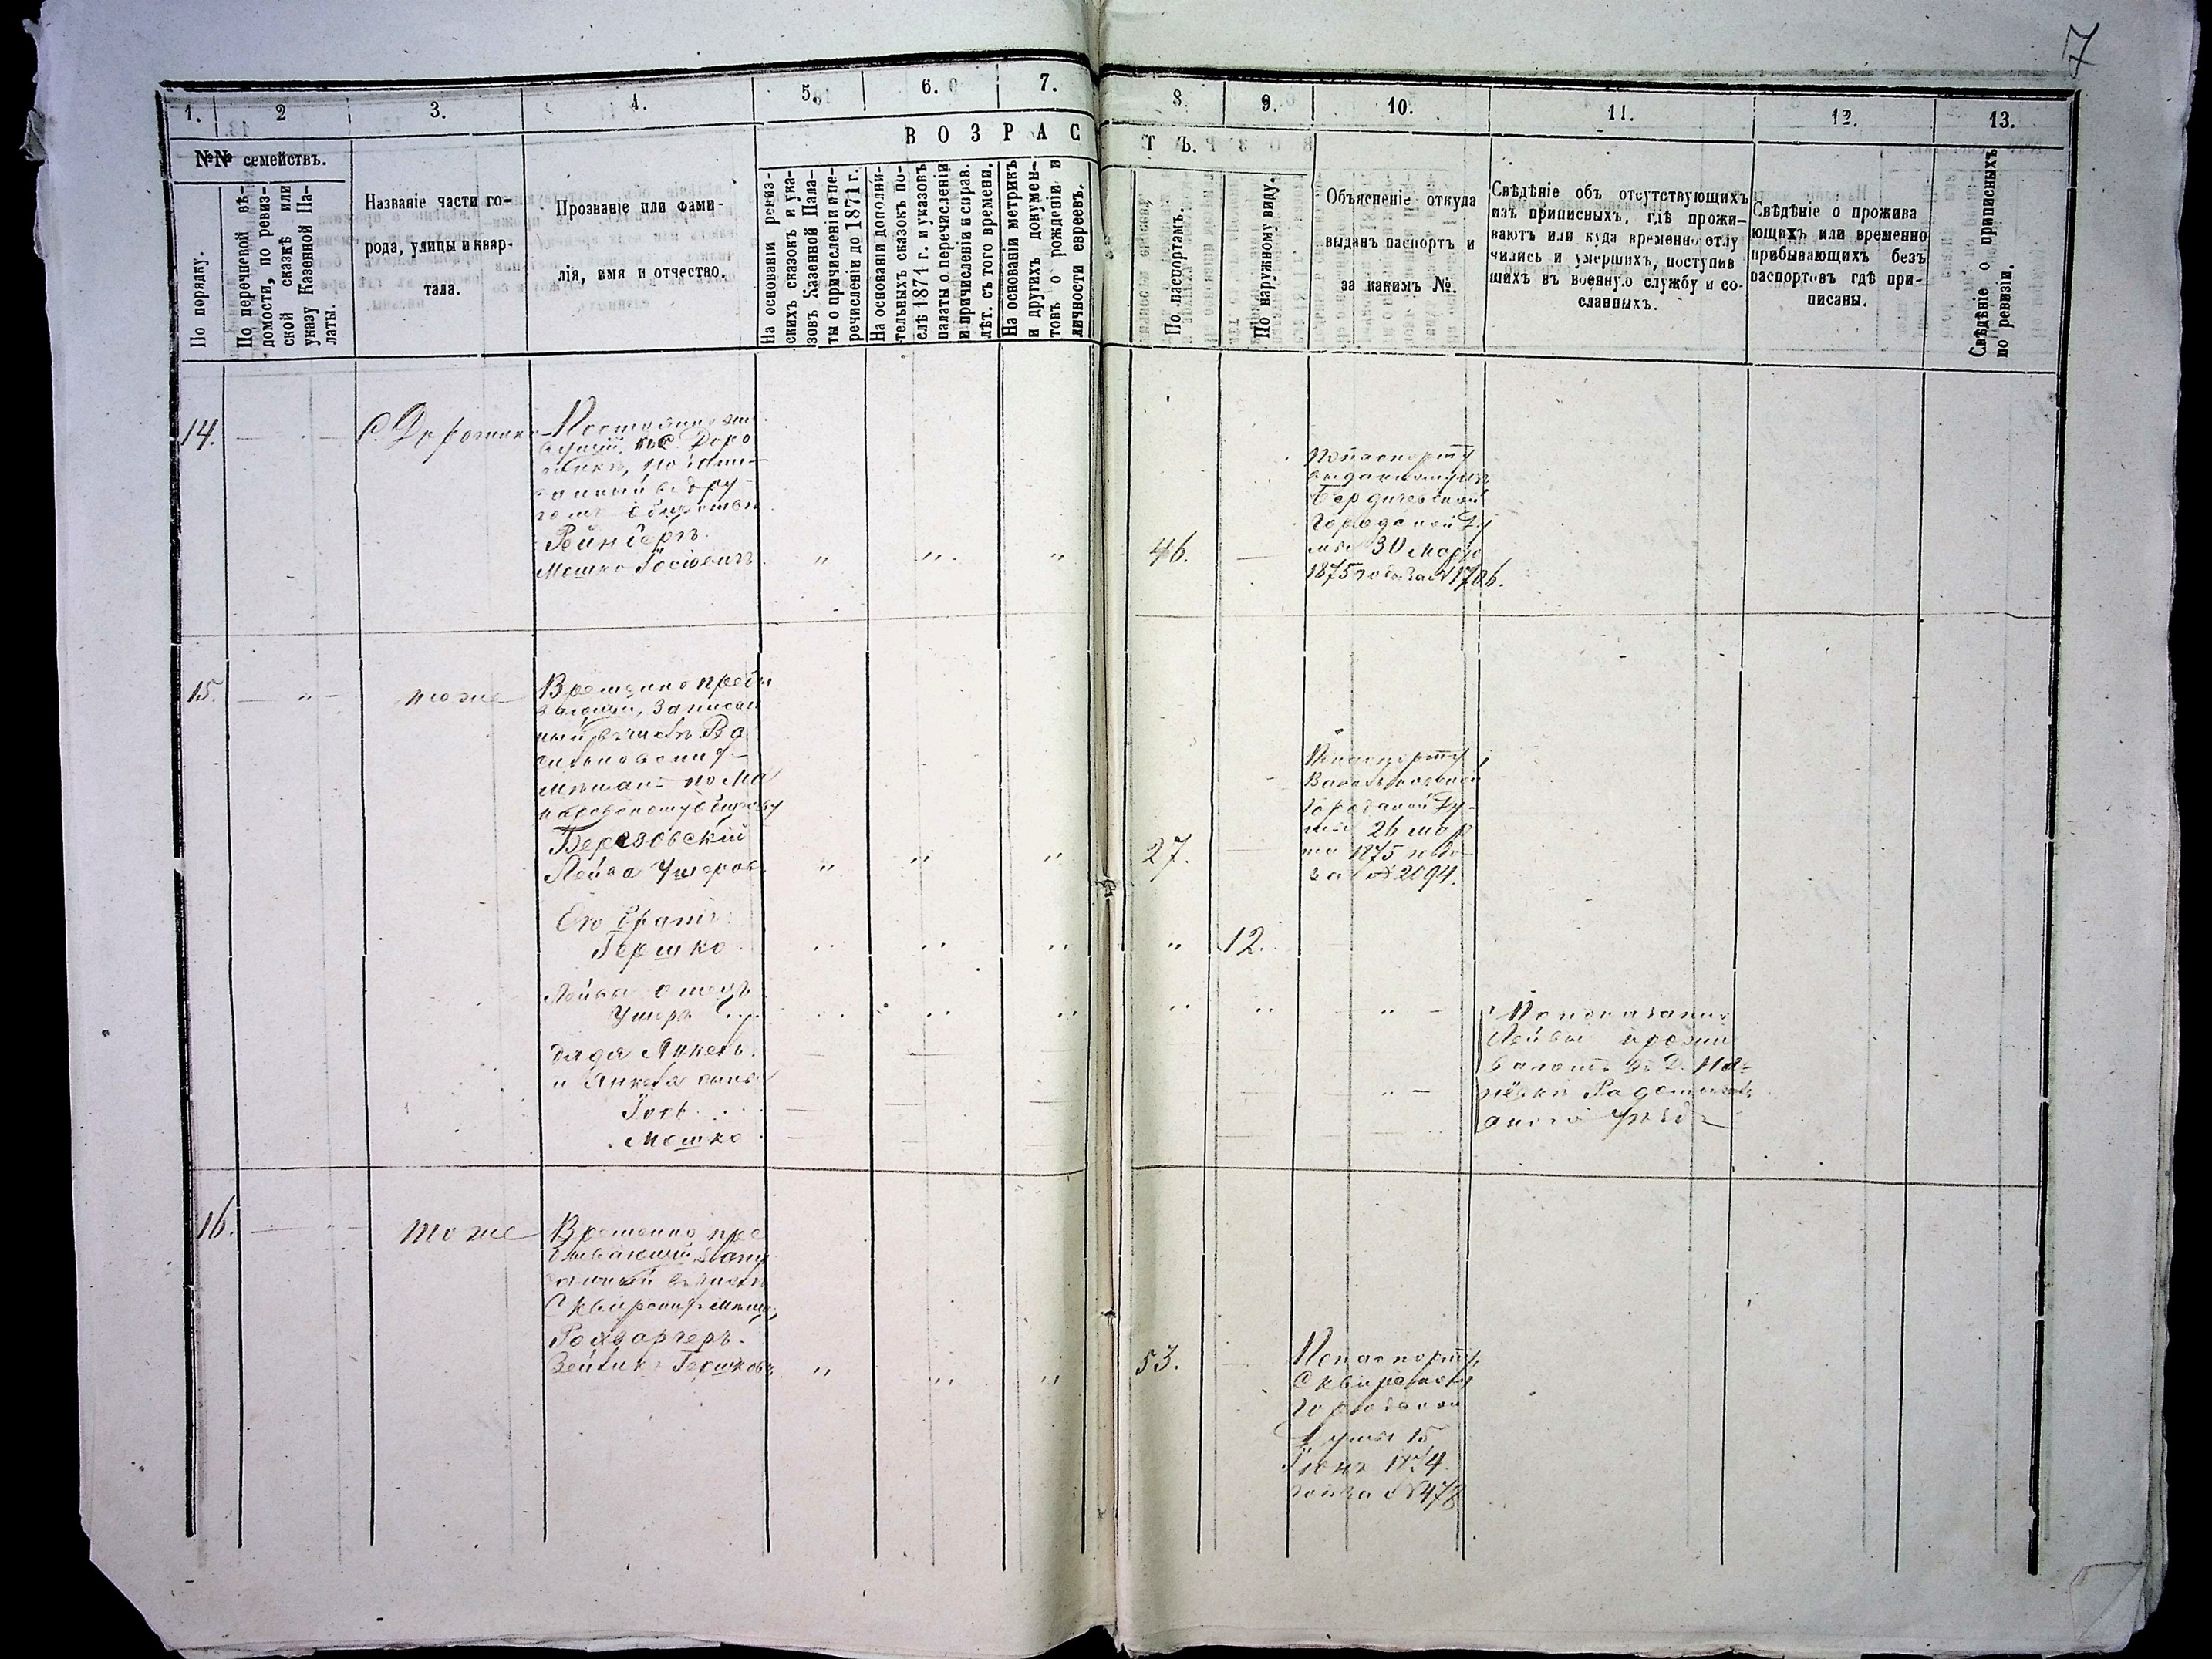 7
1. 2 3. 4. 5. 6. 7. 8. 9. 10. 11. 12. 13.
№№ семействъ.
В О З Р А С Т Ъ.
По порядку.
По перечневой вѣ-
домости, по ревиз-
ской сказкѣ или
указу Казенной Па-
латы.
Названіе части го-
рода, улицы и квар-
тала.
Прозваніе или фами-
лія, имя и отчество.
На основаніи ревиз-
скихъ сказокъ и ука-
зовъ Казенной Пала-
ты о причисленіи и пе-
речисленіи до 1871 г.
На основаніи дополни-
тельныхъ сказокъ по-
слѣ 1871 г. и указовъ
палаты о перечисленіи
и причисленіи и справ.
лѣт. съ того времени.
На основаніи метрикъ
и другихъ докумен-
товъ о рожденіи и
личности евреевъ.
По паспортамъ.
По наружному виду.
Объясненіе откуда
выданъ паспортъ и
за какимъ №.
Свѣдѣніе объ отсутствующихъ
изъ приписныхъ, гдѣ прожи-
ваютъ или куда временно отлу
чились и умершихъ, поступив
шихъ въ военную службу и со-
сланныхъ.
Свѣдѣніе о прожива
ющихъ или временно
прибывающихъ безъ
паспортовъ гдѣ при-
писаны.
Свѣдѣніе о приписныхъ
по ревизіи.
14.
Рейнбергъ
Мошко Іосіовичъ " " " 46.
Попаспорту
Бердичевской
Городской Ду
мы 30 Марта
1875 года за № 1706.
15. — " — тоже
Временно пребы
вающій, записан
ный въ числѣ Ва
сильковскихъ
мѣщанъ по Ма
Березовскій
Лейба Ушеров. " " " 27. —
Попаспорту
Васильковской
Городской Ду-
мы 26 мар
та 1875 года
за № 2094.
Его братъ
Гершко " " " " 12.
Лейбы отецъ
Ушеръ
дядя Янкель
и Янкеля сыны
Іось
Мошко
По показанію
Лейбы прожи
ваютъ въ Д.
Радомысль
скаго уѣзда
16. — " — тоже
Временно пре
бывающій запи
санный въ числѣ
Сквирскихъ мѣщ.
Зейликъ Гершковъ " " " 53. —
Попаспорту
Сквирской
Городской
Думы 15
Іюня 1874
года за № 478